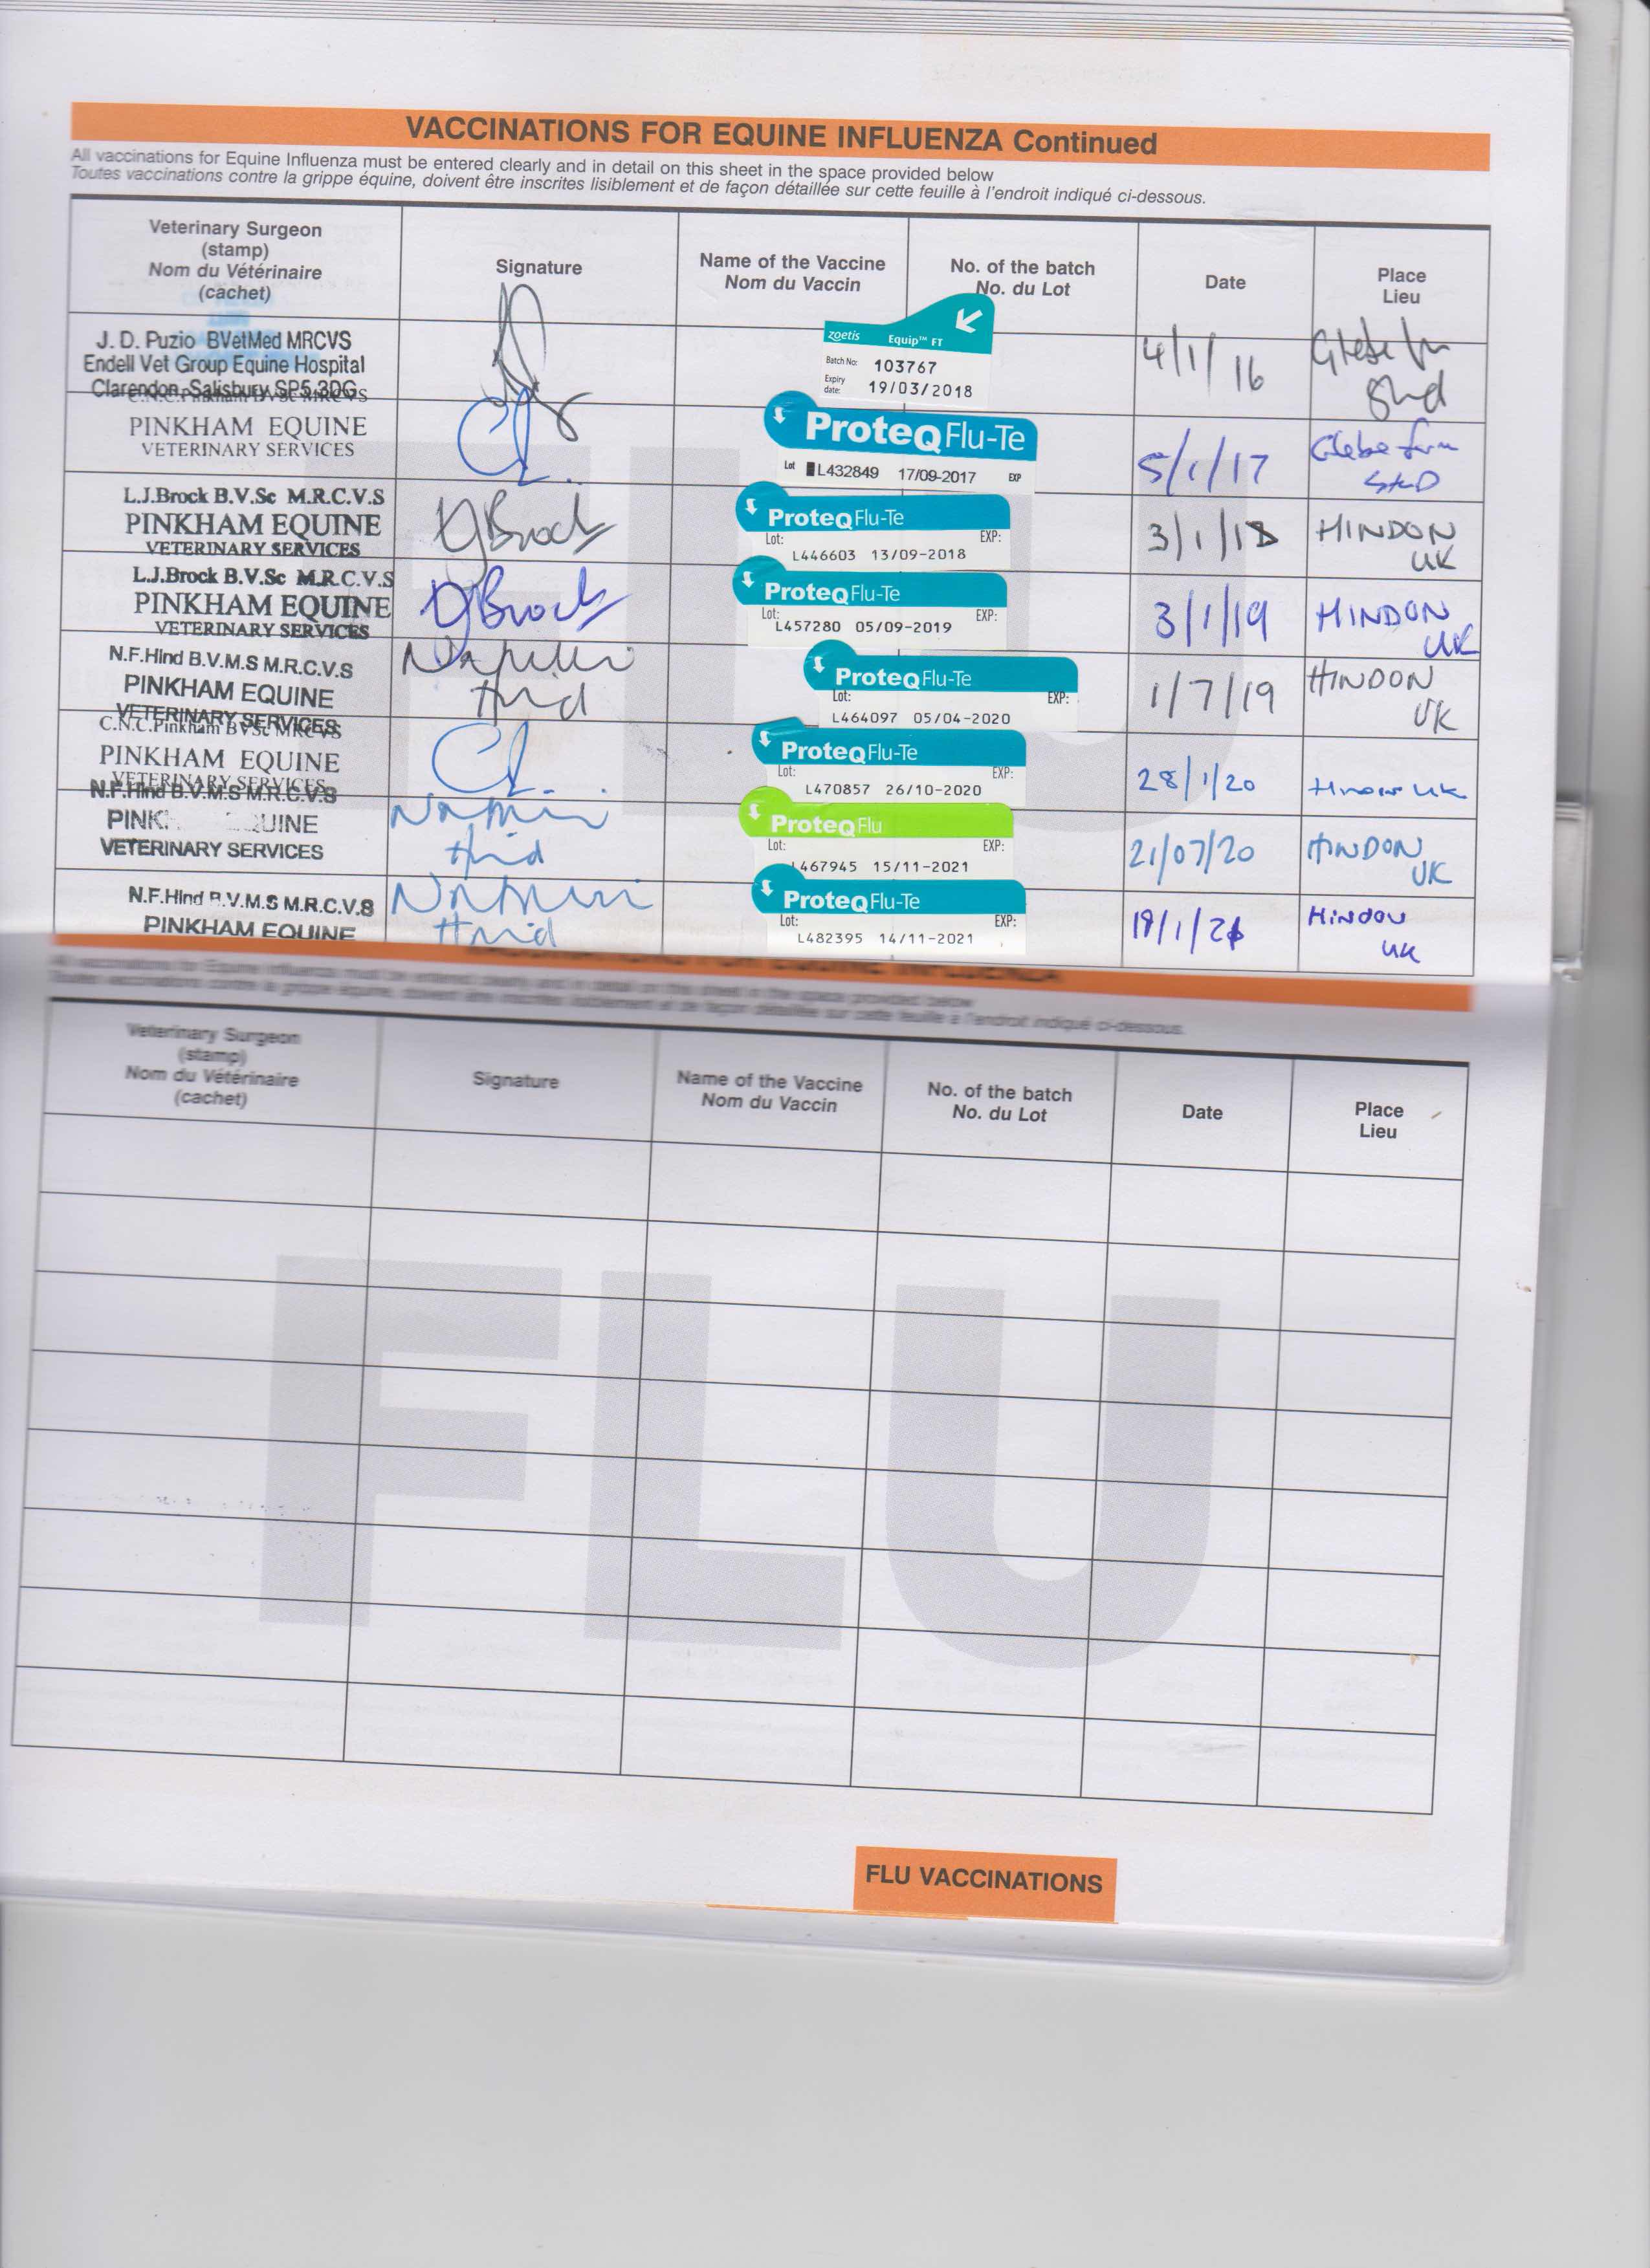 VACCINATIONS FOR EQUINE INFLUENZA Continued
All vaccinations for Equine Influenza must be entered clearly and in detail on this sheet in the space provided below
Toutes vaccinations contre la grippe équine, doivent être inscrites lisiblement et de façon détaillée sur cette feuille à l'endroit indiqué ci-dessous.
Veterinary Surgeon
(stamp)
Nom du Vétérinaire
(cachet)
Signature
Name of the Vaccine
Nom du Vaccin
No. of the batch
No. du Lot
Date
Place
Lieu
J. D. Puzio BVetMed MRCVS
Endell Vet Group Equine Hospital
Clarendon, Salisbury SP5 3DG
zoetis Equip™ FT
Batch No: 103767
Expiry date: 19/03/2018
4/1/16
Glebe fm
Stud
C.N.C.Pinkham BVSc MRCVS
PINKHAM EQUINE
VETERINARY SERVICES
ProteqFlu-Te
Lot L432849 17/09-2017 EXP
5/1/17
Glebe farm
StuD
L.J.Brock B.V.Sc M.R.C.V.S
PINKHAM EQUINE
VETERINARY SERVICES
LJBrock
ProteqFlu-Te
Lot: EXP:
L446603 13/09-2018
3/1/18
HINDON
UK
L.J.Brock B.V.Sc M.R.C.V.S
PINKHAM EQUINE
VETERINARY SERVICES
LJBrock
ProteqFlu-Te
Lot: EXP:
L457280 05/09-2019
3/1/19
HINDON
UK
N.F.Hind B.V.M.S M.R.C.V.S
PINKHAM EQUINE
VETERINARY SERVICES
Hind
ProteqFlu-Te
Lot: EXP:
L464097 05/04-2020
1/7/19
HINDON
UK
C.N.C.Pinkham BVSc MRCVS
PINKHAM EQUINE
VETERINARY SERVICES
ProteqFlu-Te
Lot: EXP:
L470857 26/10-2020
28/1/20
Hindon UK
N.F.Hind B.V.M.S M.R.C.V.S
PINK UINE
VETERINARY SERVICES
Hind
ProteqFlu
Lot: EXP:
L467945 15/11-2021
21/07/20
HINDON
UK
N.F.Hind B.V.M.S M.R.C.V.S
PINKHAM EQUINE
Hind
ProteqFlu-Te
Lot: EXP:
L482395 14/11-2021
HINDON
UK
All vaccinations for Equine Influenza must be entered clearly and in detail on this sheet in the space provided below
Toutes vaccinations contre la grippe équine, doivent être inscrites lisiblement et de façon détaillée sur cette feuille à l'endroit indiqué ci-dessous.
Veterinary Surgeon
(stamp)
Nom du Vétérinaire
(cachet)
Signature
Name of the Vaccine
Nom du Vaccin
No. of the batch
No. du Lot
Date
Place
Lieu
FLU
FLU VACCINATIONS